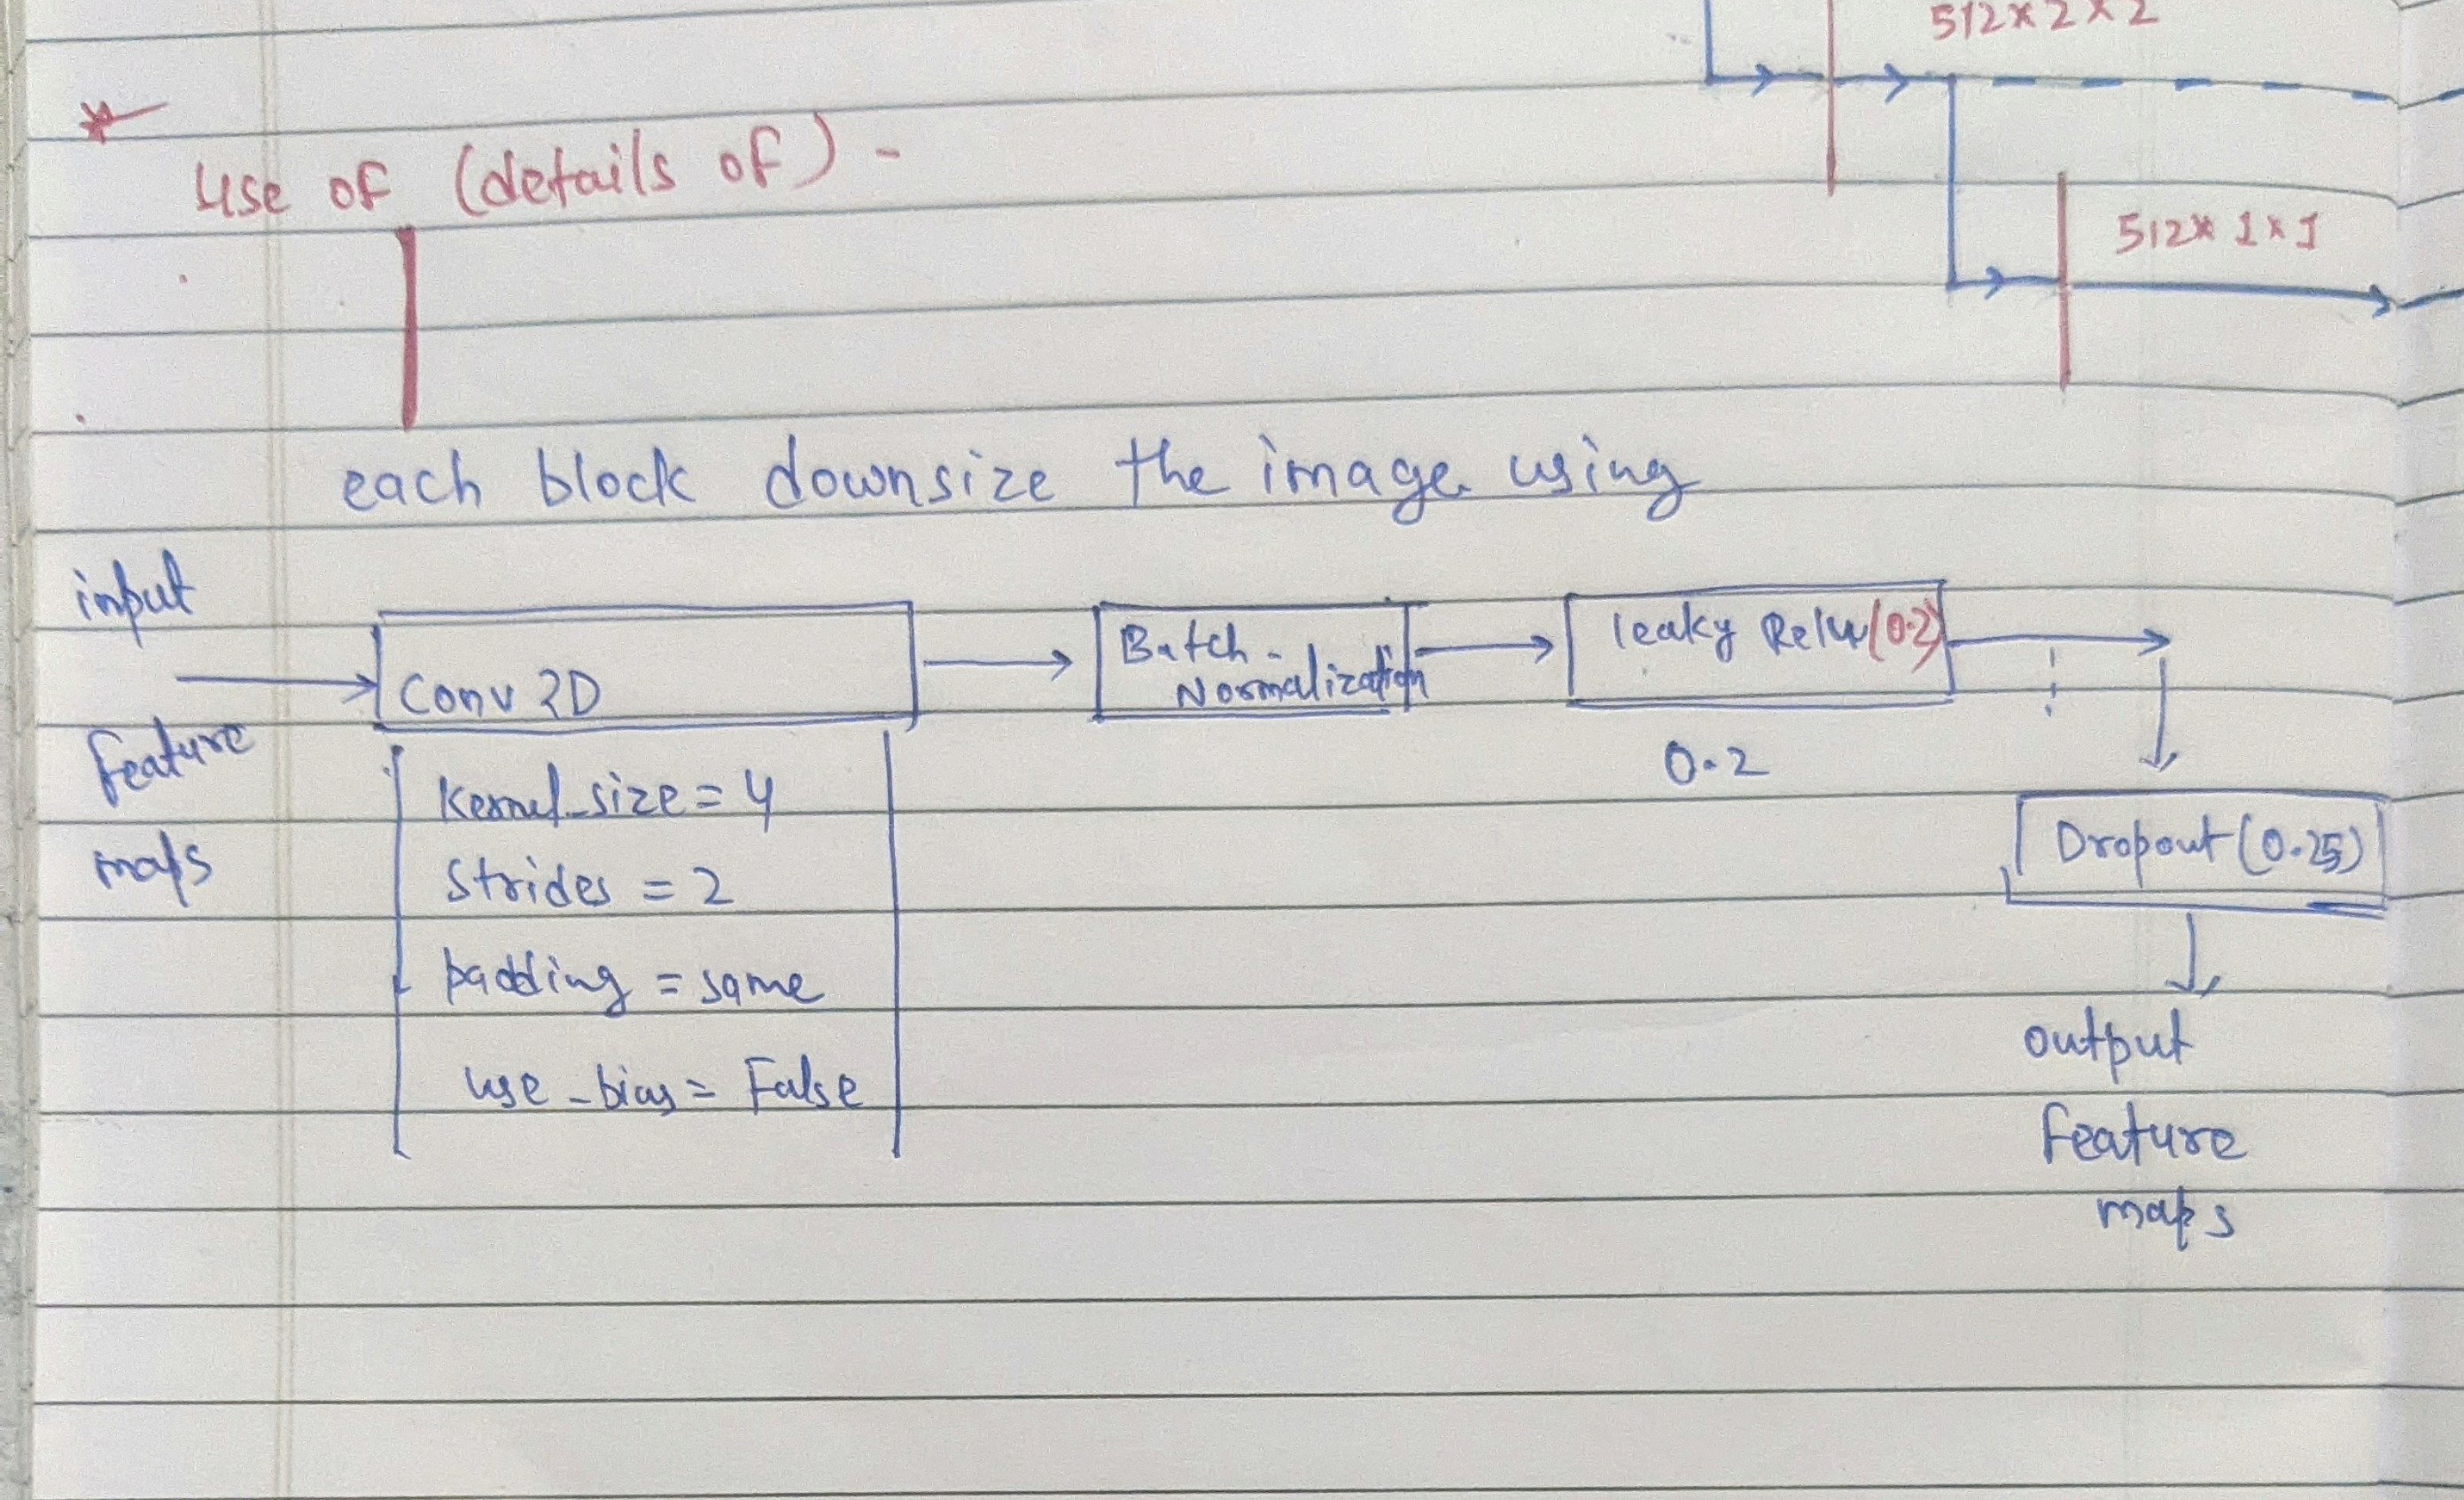 512×2×2
Use of (details of) -
512×1×1
each block downsize the image using
input
feature
maps
Conv 2D
Kernel_size = 4
Strides = 2
padding = same
use_bias = False
Batch-
Normalization
leaky Relu(0.2)
0.2
Dropout (0.25)
output
feature
maps